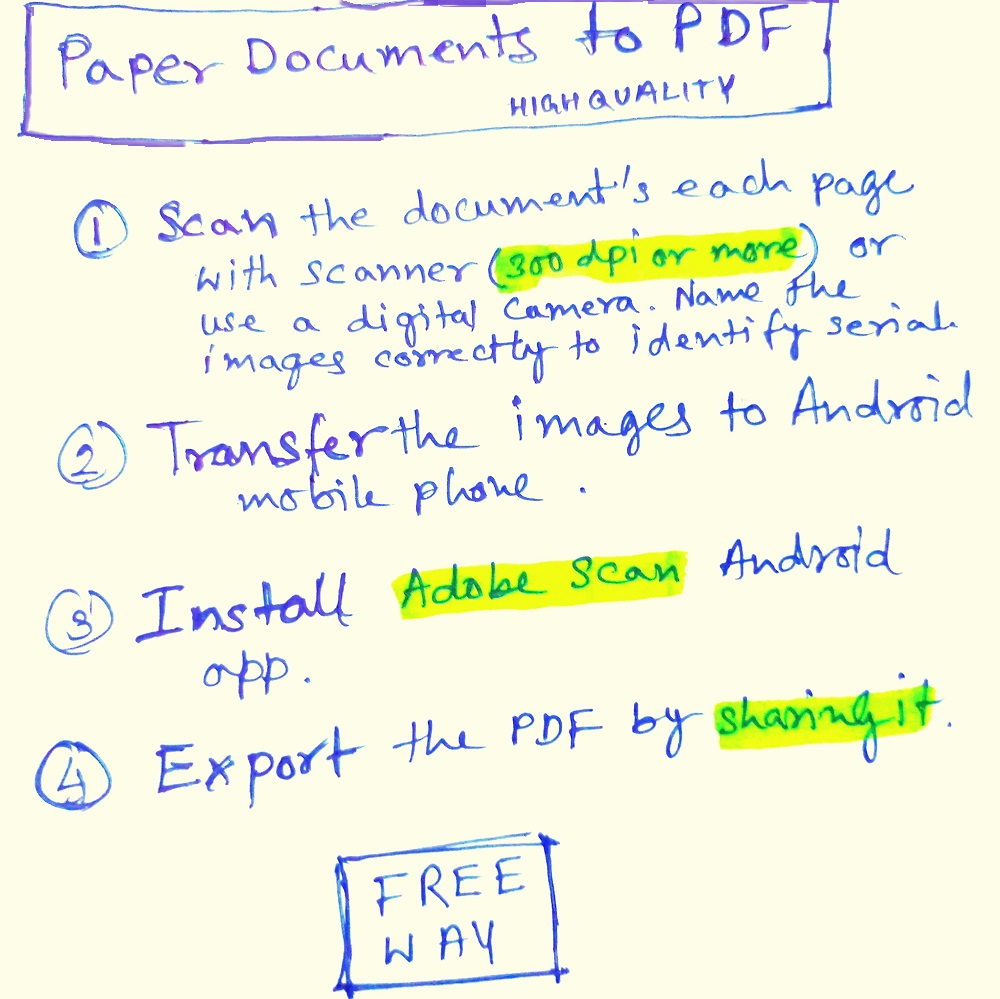 Paper Documents to PDF
HIGH QUALITY
1 Scan the document's each page
with scanner (300 dpi or more) or
use a digital camera. Name the
images correctly to identify serial.
2 Transfer the images to Android
mobile phone.
3 Install Adobe Scan Android
app.
4 Export the PDF by sharing it.
FREE
WAY